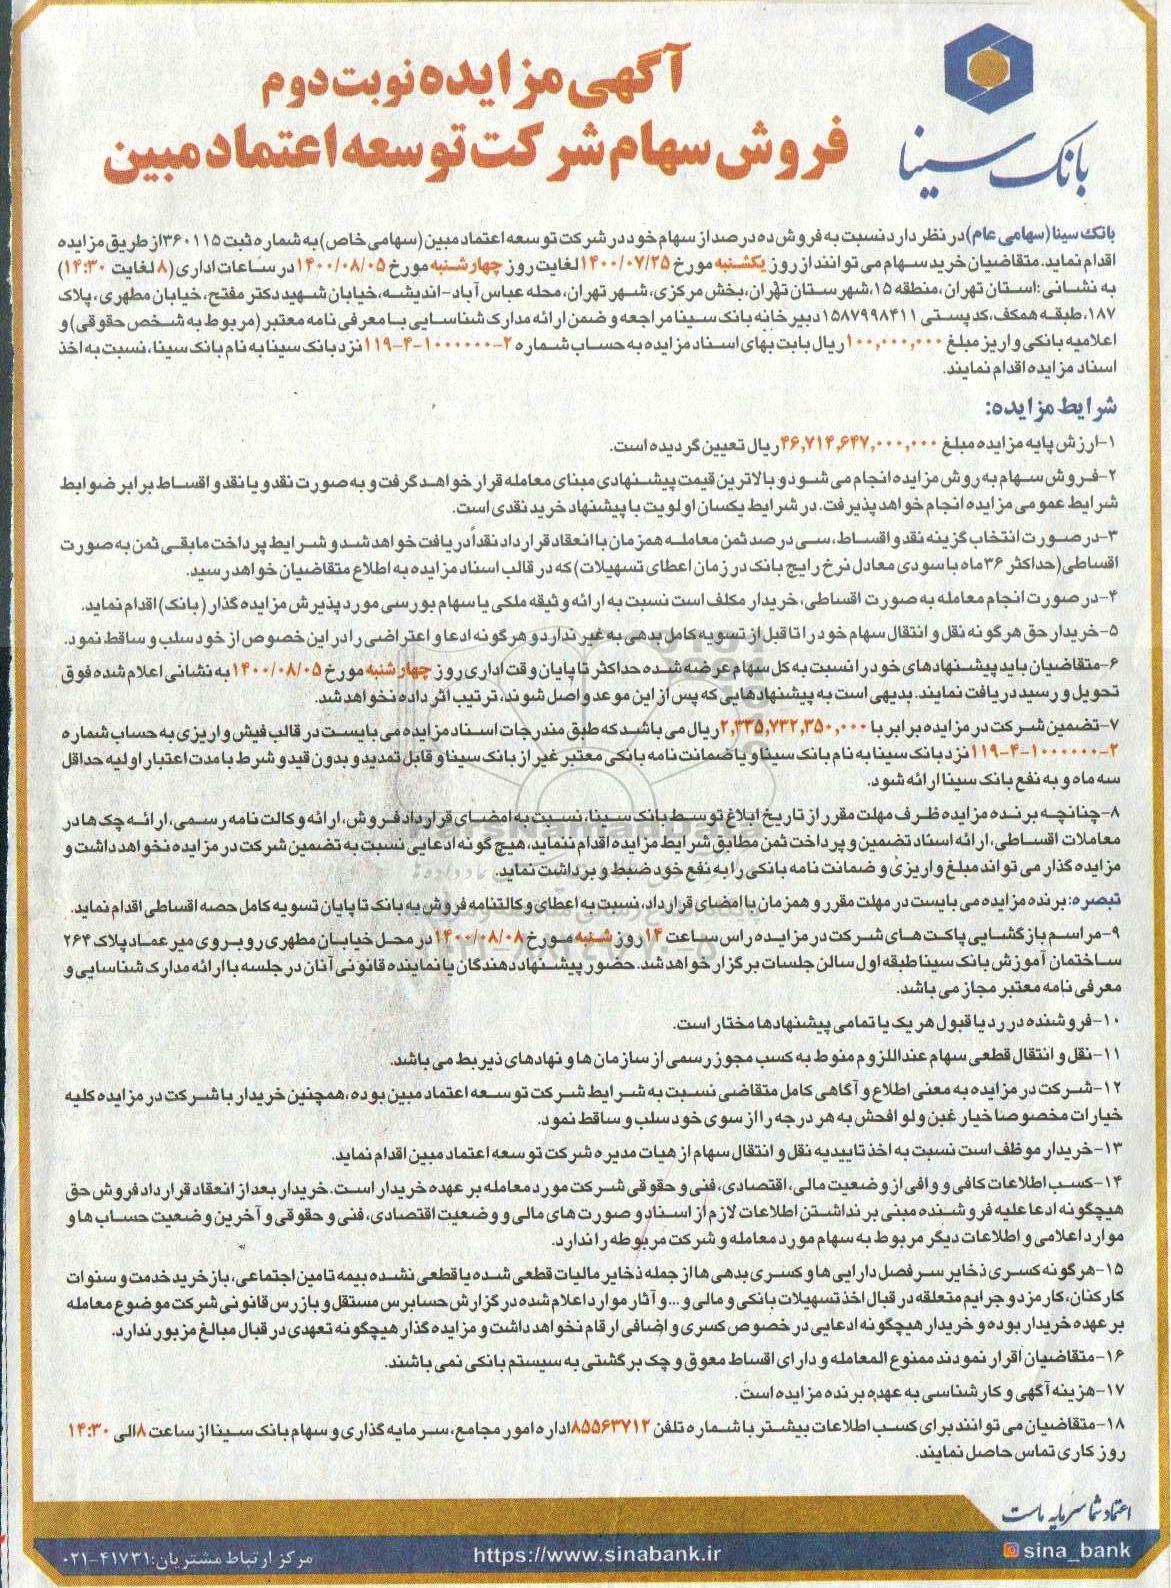 بانک سینا
آگهی مزایده نوبت دوم
فروش سهام شرکت توسعه اعتماد مبین
بانک سینا (سهامی عام) در نظر دارد نسبت به فروش ده درصد از سهام خود در شرکت توسعه اعتماد مبین (سهامی خاص) به شماره ثبت ۳۶۰۱۱۵ از طریق مزایده
اقدام نماید. متقاضیان خرید سهام می توانند از روز یکشنبه مورخ ۱۴۰۰/۰۷/۲۵ لغایت روز چهارشنبه مورخ ۱۴۰۰/۰۸/۰۵ در ساعات اداری (۸ لغایت ۱۴:۳۰)
به نشانی: استان تهران، منطقه ۱۵، شهرستان تهران، بخش مرکزی، شهر تهران، محله عباس آباد-اندیشه، خیابان شهید دکتر مفتح، خیابان مطهری، پلاک
۱۸۷، طبقه همکف، کد پستی ۱۵۸۷۹۹۸۴۱۱ دبیرخانه بانک سینا مراجعه و ضمن ارائه مدارک شناسایی با معرفی نامه معتبر (مربوط به شخص حقوقی) و
اعلامیه بانکی واریز مبلغ ۱۰۰,۰۰۰,۰۰۰ ریال بابت بهای اسناد مزایده به حساب شماره ۲-۱۰۰۰۰۰۰-۴-۱۱۹ نزد بانک سینا به نام بانک سینا، نسبت به اخذ
اسناد مزایده اقدام نمایند.
شرایط مزایده:
۱-ارزش پایه مزایده مبلغ ۴۶,۷۱۴,۶۴۷,۰۰۰,۰۰۰ ریال تعیین گردیده است.
۲-فروش سهام به روش مزایده انجام می شود و بالاترین قیمت پیشنهادی مبنای معامله قرار خواهد گرفت و به صورت نقد و یا نقد و اقساط برابر ضوابط
شرایط عمومی مزایده انجام خواهد پذیرفت. در شرایط یکسان اولویت با پیشنهاد خرید نقدی است.
۳-در صورت انتخاب گزینه نقد و اقساط، سی درصد ثمن معامله همزمان با انعقاد قرارداد نقداً دریافت خواهد شد و شرایط پرداخت مابقی ثمن به صورت
اقساطی (حداکثر ۳۶ ماه با سودی معادل نرخ رایج بانک در زمان اعطای تسهیلات) که در قالب اسناد مزایده به اطلاع متقاضیان خواهد رسید.
۴-در صورت انجام معامله به صورت اقساطی، خریدار مکلف است نسبت به ارائه وثیقه ملکی یا سهام بورسی مورد پذیرش مزایده گذار (بانک) اقدام نماید.
۵-خریدار حق هرگونه نقل و انتقال سهام خود را تا قبل از تسویه کامل بدهی به غیر ندارد و هرگونه ادعا و اعتراضی را در این خصوص از خود سلب و ساقط نمود.
۶-متقاضیان باید پیشنهادهای خود را نسبت به کل سهام عرضه شده حداکثر تا پایان وقت اداری روز چهارشنبه مورخ ۱۴۰۰/۰۸/۰۵ به نشانی اعلام شده فوق
تحویل و رسید دریافت نمایند. بدیهی است به پیشنهادهایی که پس از این موعد واصل شوند، ترتیب اثر داده نخواهد شد.
۷-تضمین شرکت در مزایده برابر با ۲,۳۳۵,۷۳۲,۳۵۰,۰۰۰ ریال می باشد که طبق مندرجات اسناد مزایده می بایست در قالب فیش واریزی به حساب شماره
۲-۱۰۰۰۰۰۰-۴-۱۱۹ نزد بانک سینا به نام بانک سینا و یا ضمانت نامه بانکی معتبر غیر از بانک سینا و قابل تمدید و بدون قید و شرط با مدت اعتبار اولیه حداقل
سه ماه و به نفع بانک سینا ارائه شود.
۸-چنانچه برنده مزایده ظرف مهلت مقرر از تاریخ ابلاغ توسط بانک سینا، نسبت به امضای قرارداد فروش، ارائه وکالت نامه رسمی، ارائه چک ها در
معاملات اقساطی، ارائه اسناد تضمین و پرداخت ثمن مطابق شرایط مزایده اقدام ننماید، هیچ گونه ادعایی نسبت به تضمین شرکت در مزایده نخواهد داشت و
مزایده گذار می تواند مبلغ واریزی و ضمانت نامه بانکی را به نفع خود ضبط و برداشت نماید.
تبصره: برنده مزایده می بایست در مهلت مقرر و همزمان با امضای قرارداد، نسبت به اعطای وکالتنامه فروش به بانک تا پایان تسویه کامل حصه اقساطی اقدام نماید.
۹-مراسم بازگشایی پاکت های شرکت در مزایده راس ساعت ۱۴ روز شنبه مورخ ۱۴۰۰/۰۸/۰۸ در محل خیابان مطهری روبروی میرعماد پلاک ۲۶۴
ساختمان آموزش بانک سینا طبقه اول سالن جلسات برگزار خواهد شد. حضور پیشنهاد دهندگان یا نماینده قانونی آنان در جلسه با ارائه مدارک شناسایی و
معرفی نامه معتبر مجاز می باشد.
۱۰-فروشنده در رد یا قبول هر یک یا تمامی پیشنهادها مختار است.
۱۱-نقل و انتقال قطعی سهام عنداللزوم منوط به کسب مجوز رسمی از سازمان ها و نهادهای ذیربط می باشد.
۱۲-شرکت در مزایده به معنی اطلاع و آگاهی کامل متقاضی نسبت به شرایط شرکت توسعه اعتماد مبین بوده، همچنین خریدار با شرکت در مزایده کلیه
خیارات مخصوصا خیار غبن ولو افحش به هر درجه را از سوی خود سلب و ساقط نمود.
۱۳-خریدار موظف است نسبت به اخذ تاییدیه نقل و انتقال سهام از هیات مدیره شرکت توسعه اعتماد مبین اقدام نماید.
۱۴-کسب اطلاعات کافی و وافی از وضعیت مالی، اقتصادی، فنی و حقوقی شرکت مورد معامله بر عهده خریدار است. خریدار بعد از انعقاد قرارداد فروش حق
هیچگونه ادعا علیه فروشنده مبنی بر نداشتن اطلاعات لازم از اسناد و صورت های مالی و وضعیت اقتصادی، فنی و حقوقی و آخرین وضعیت حساب ها و
موارد اعلامی و اطلاعات دیگر مربوط به سهام مورد معامله و شرکت مربوطه را ندارد.
۱۵-هرگونه کسری ذخایر سرفصل دارایی ها و کسری بدهی ها از جمله ذخایر مالیات قطعی شده یا قطعی نشده بیمه تامین اجتماعی، بازخرید خدمت و سنوات
کارکنان، کارمزد و جرایم متعلقه در قبال اخذ تسهیلات بانکی و مالی و... و آثار موارد اعلام شده در گزارش حسابرس مستقل و بازرس قانونی شرکت موضوع معامله
بر عهده خریدار بوده و خریدار هیچگونه ادعایی در خصوص کسری و اضافی ارقام نخواهد داشت و مزایده گذار هیچگونه تعهدی در قبال مبالغ مزبور ندارد.
۱۶-متقاضیان اقرار نمودند ممنوع المعامله و دارای اقساط معوق و چک برگشتی به سیستم بانکی نمی باشند.
۱۷-هزینه آگهی و کارشناسی به عهده برنده مزایده است.
۱۸-متقاضیان می توانند برای کسب اطلاعات بیشتر با شماره تلفن ۸۵۵۶۳۷۱۲ اداره امور مجامع، سرمایه گذاری و سهام بانک سینا از ساعت ۸ الی ۱۴:۳۰
روز کاری تماس حاصل نمایند.
اعتماد شما سرمایه ماست
sina_bank
https://www.sinabank.ir
مرکز ارتباط مشتریان: ۰۲۱-۴۱۷۳۱